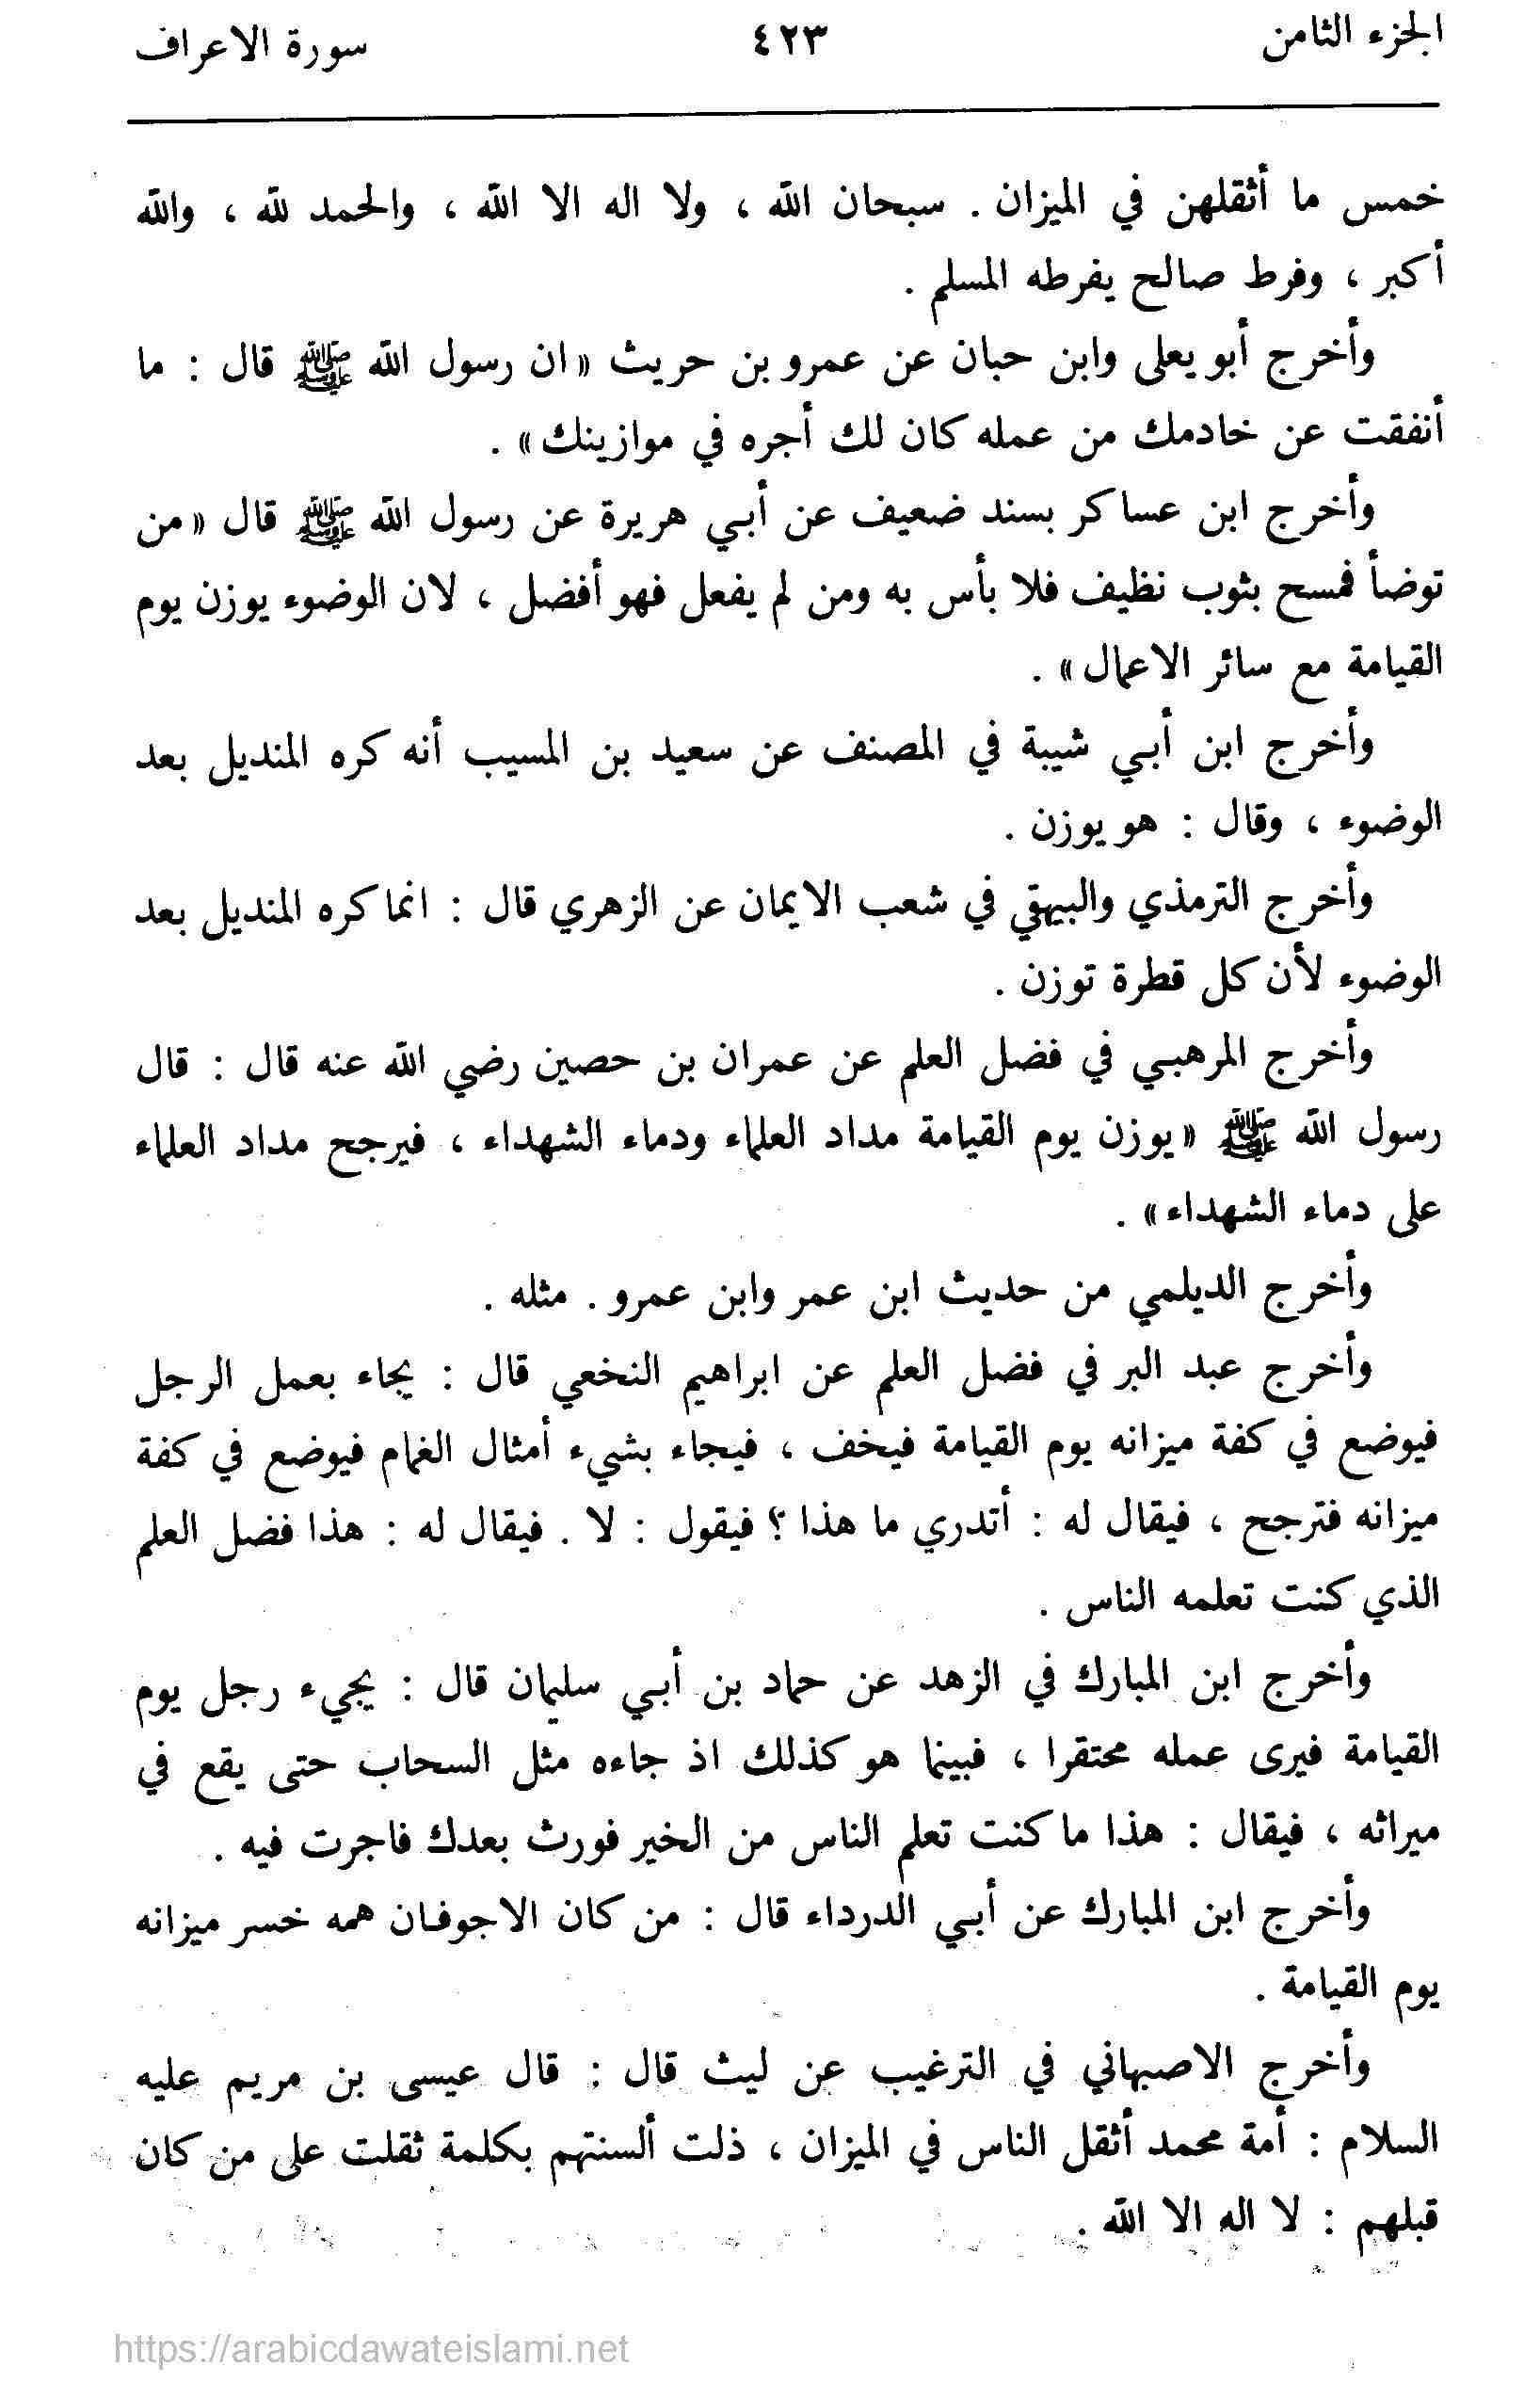 الجزء الثامن
٤٢٣
سورة الاعراف
خمس ما أثقلهن في الميزان . سبحان الله ، ولا اله الا الله ، والحمد لله ، والله
أكبر ، وفرط صالح يفرطه المسلم .
وأخرج أبو يعلى وابن حبان عن عمرو بن حريث « ان رسول الله ﷺ قال : ما
أنفقت عن خادمك من عمله كان لك أجره في موازينك » .
وأخرج ابن عساكر بسند ضعيف عن أبي هريرة عن رسول الله ﷺ قال « من
توضأ فمسح بثوب نظيف فلا بأس به ومن لم يفعل فهو أفضل ، لان الوضوء يوزن يوم
القيامة مع سائر الاعمال » .
وأخرج ابن أبي شيبة في المصنف عن سعيد بن المسيب أنه كره المنديل بعد
الوضوء ، وقال : هو يوزن .
وأخرج الترمذي والبيهقي في شعب الايمان عن الزهري قال : انما كره المنديل بعد
الوضوء لأن كل قطرة توزن .
وأخرج المرهبي في فضل العلم عن عمران بن حصين رضي الله عنه قال : قال
رسول الله ﷺ « يوزن يوم القيامة مداد العلماء ودماء الشهداء ، فيرجح مداد العلماء
على دماء الشهداء » .
وأخرج الديلمي من حديث ابن عمر وابن عمرو . مثله .
وأخرج عبد البر في فضل العلم عن ابراهيم النخعي قال : يجاء بعمل الرجل
فيوضع في كفة ميزانه يوم القيامة فيخف ، فيجاء بشيء أمثال الغمام فيوضع في كفة
ميزانه فترجح ، فيقال له : أتدري ما هذا ؟ فيقول : لا . فيقال له : هذا فضل العلم
الذي كنت تعلمه الناس .
وأخرج ابن المبارك في الزهد عن حماد بن أبي سليمان قال : يجيء رجل يوم
القيامة فيرى عمله محتقرا ، فبينما هو كذلك اذ جاءه مثل السحاب حتى يقع في
ميراثه ، فيقال : هذا ما كنت تعلم الناس من الخير فورث بعدك فاجرت فيه .
وأخرج ابن المبارك عن أبي الدرداء قال : من كان الاجوفان همه خسر ميزانه
يوم القيامة .
وأخرج الاصبهاني في الترغيب عن ليث قال : قال عيسى بن مريم عليه
السلام : أمة محمد أثقل الناس في الميزان ، ذلت ألسنتهم بكلمة ثقلت على من كان
قبلهم : لا اله الا الله .
https://arabicdawateislami.net